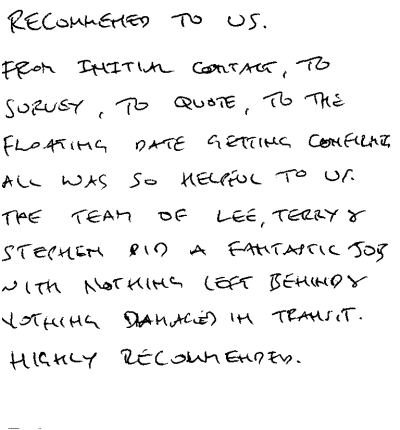 RECOMMENED TO US.
FROM INITIAL CONTACT, TO
SURVEY, TO QUOTE, TO THE
FLOATING DATE GETTING CONFIRMED
ALL WAS SO HELPFUL TO US.
THE TEAM OF LEE, TERRY &
STEPHEN DID A FANTASTIC JOB
WITH NOTHING LEFT BEHIND &
NOTHING DAMAGED IN TRANSIT.
HIGHLY RECOMMENDED.